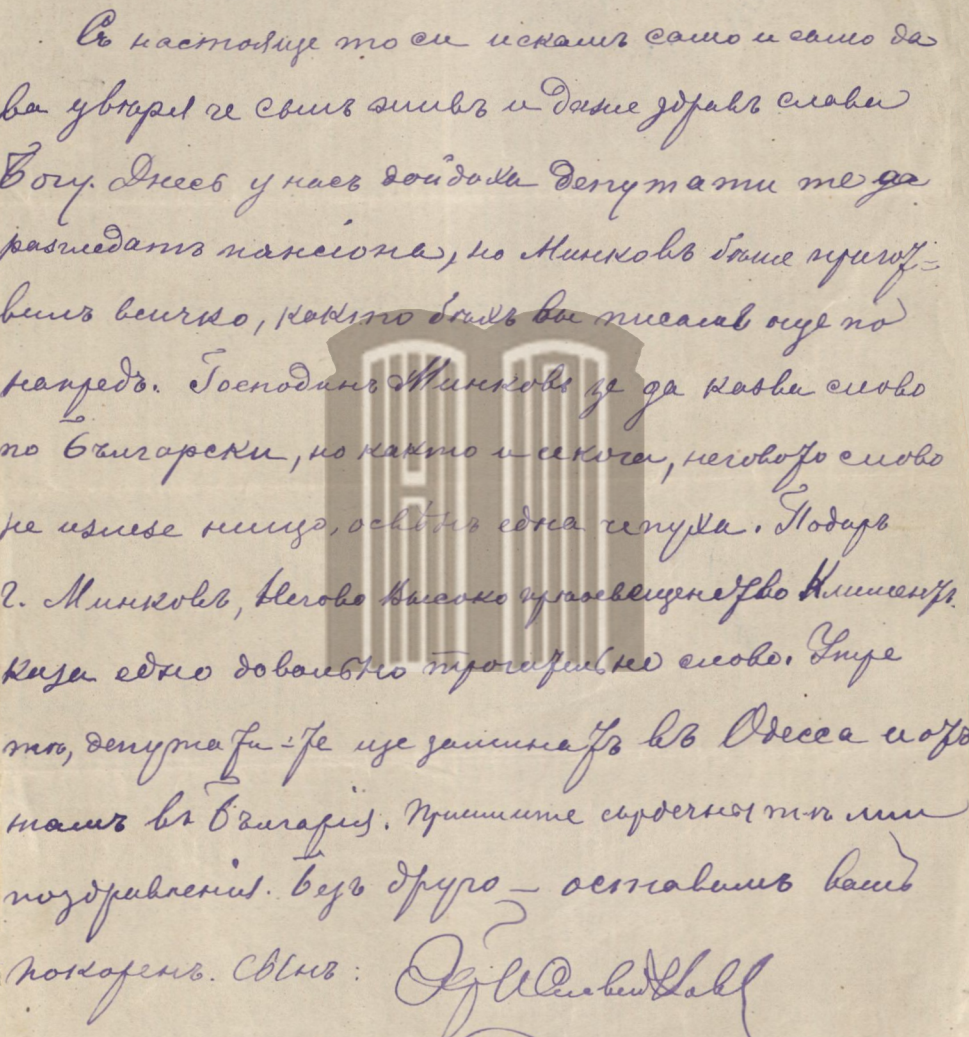 Съ настояще то си искамъ само и само да
ва увѣря че съмъ живъ и даже здравъ слава
Богу. Днесь у насъ дойдоха депутати те да
разгледатъ пансіона, но Минковъ бѣше пригот=
вилъ всичко, както бѣхъ ви писалъ още по
напредъ. Господинъ Минковъ да казва слово
по Български, но както и секога, неговото слово
не излезе нищо, освѣнъ една чепуха. Подиръ
г. Минковъ, Негово Высоко преосвещенство Климентъ.
каза едно довольно трогательно слово. Утре
тѣ, депутати-те ще заминатъ въ Одесса и отъ
тамъ въ България. Приимите сърдечны тѣ ми
поздравления. Безъ друго — оставамъ вашъ
покоренъ. Сынъ: Славейковъ